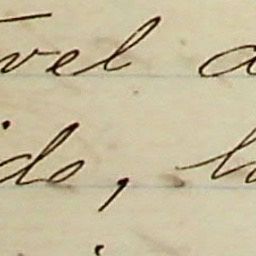 vel a
ido, lo